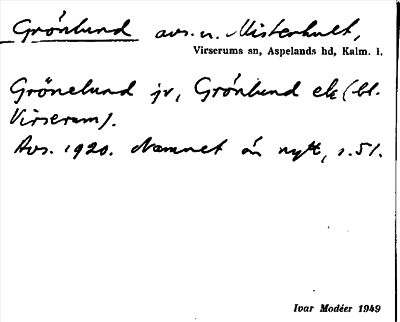 Grönlund avs. u. Misterhult,
Virserums sn, Aspelands hd, Kalm. l.
Grönelund jv, Grönlund ek (bl.
Virserum).
Avs. 1920. Namnet är nytt, s. 51.
Ivar Modéer 1949